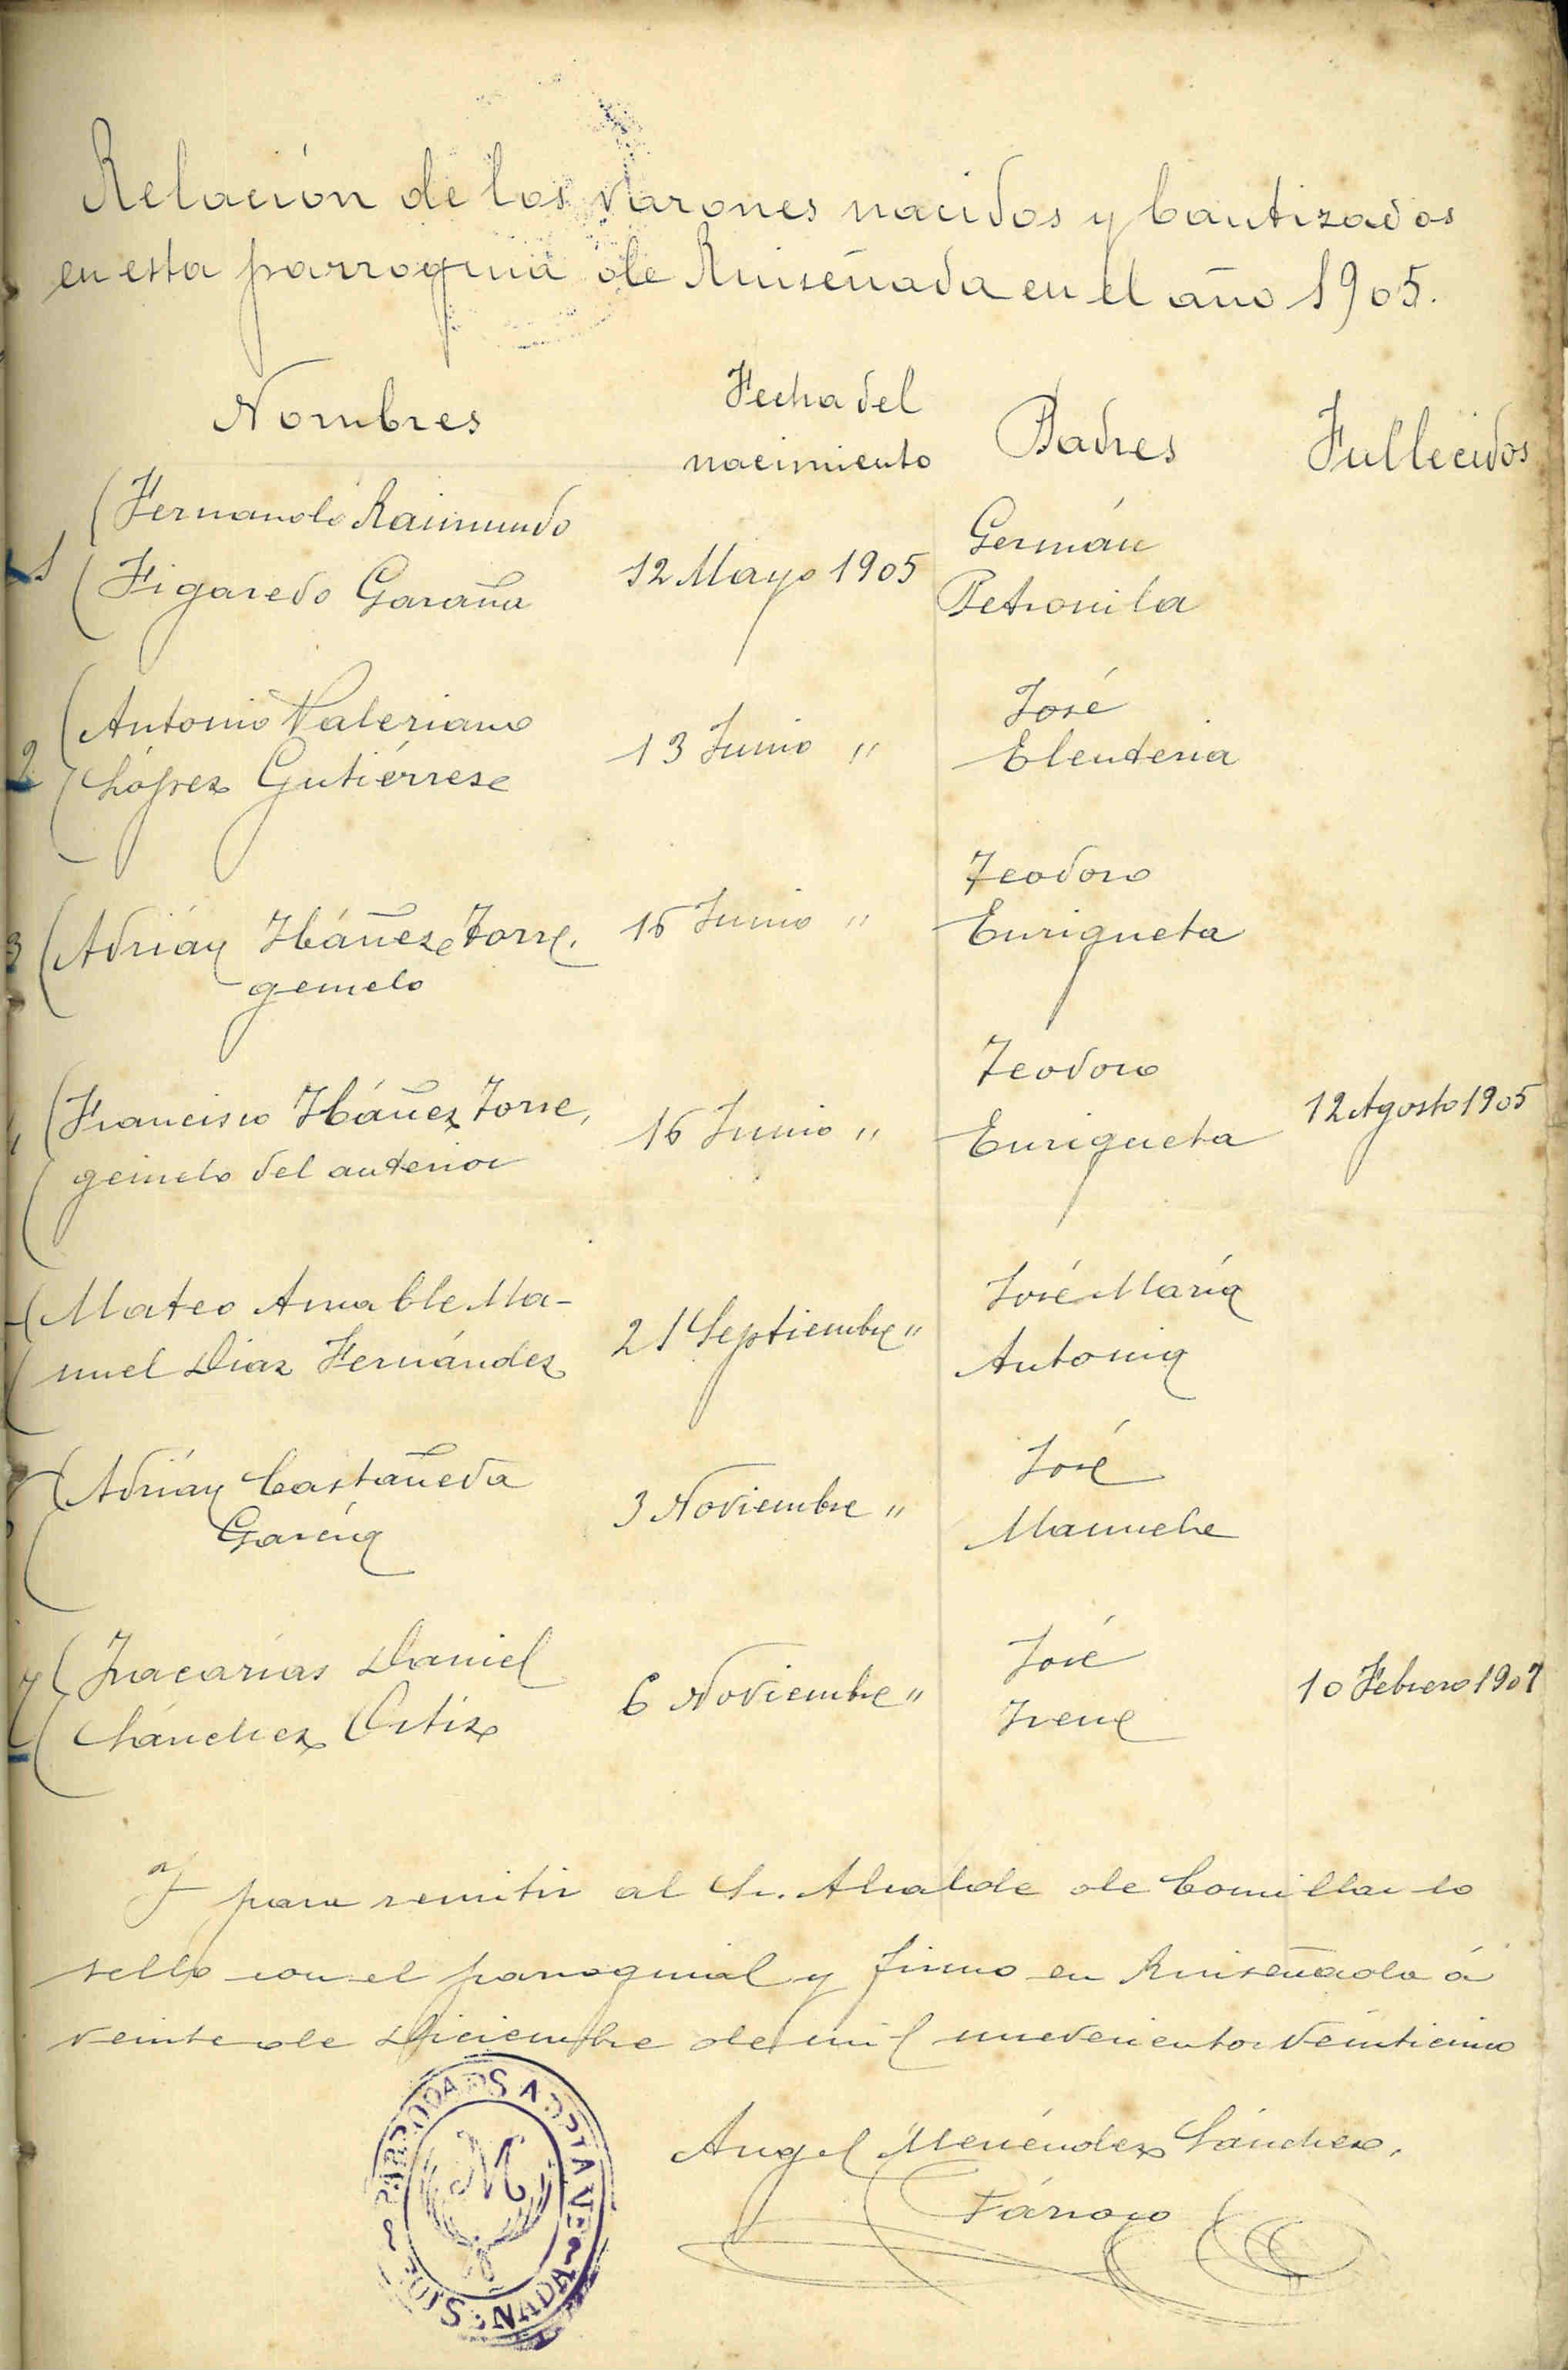 Relación de los varones nacidos y bautizados
en esta parroquia de Ruiseñada en el año 1905.
Nombres Fecha del nacimiento Padres Fallecidos
1 Fernando Raimundo
Figaredo Garaña 12 Mayo 1905 Germán
Petronila
2 Antonio Valeriano
López Gutiérrez 13 Junio " José
Eleuteria
3 Adrián Ibáñez Torre,
gemelo 16 Junio " Teodoro
Enriqueta
Francisco Ibáñez Torre,
gemelo del anterior 16 Junio " Teodoro
Enriqueta 12 Agosto 1905
Mateo Amable Ma-
nuel Diaz Fernández 21 Septiembre " José María
Antonia
Adrián Castañeda
García 3 Noviembre " José
Manuela
7 Zacarías Daniel
Sánchez Ortiz 6 Noviembre " José
Irene 10 Febrero 1907
Y para remitir al Sr. Alcalde de Comillas lo
sello con el parroquial y firmo en Ruiseñada á
veinte de Diciembre de mil novecientos veinticinco
Angel Menéndez Sánchez,
Párroco
RUISEÑADA
M